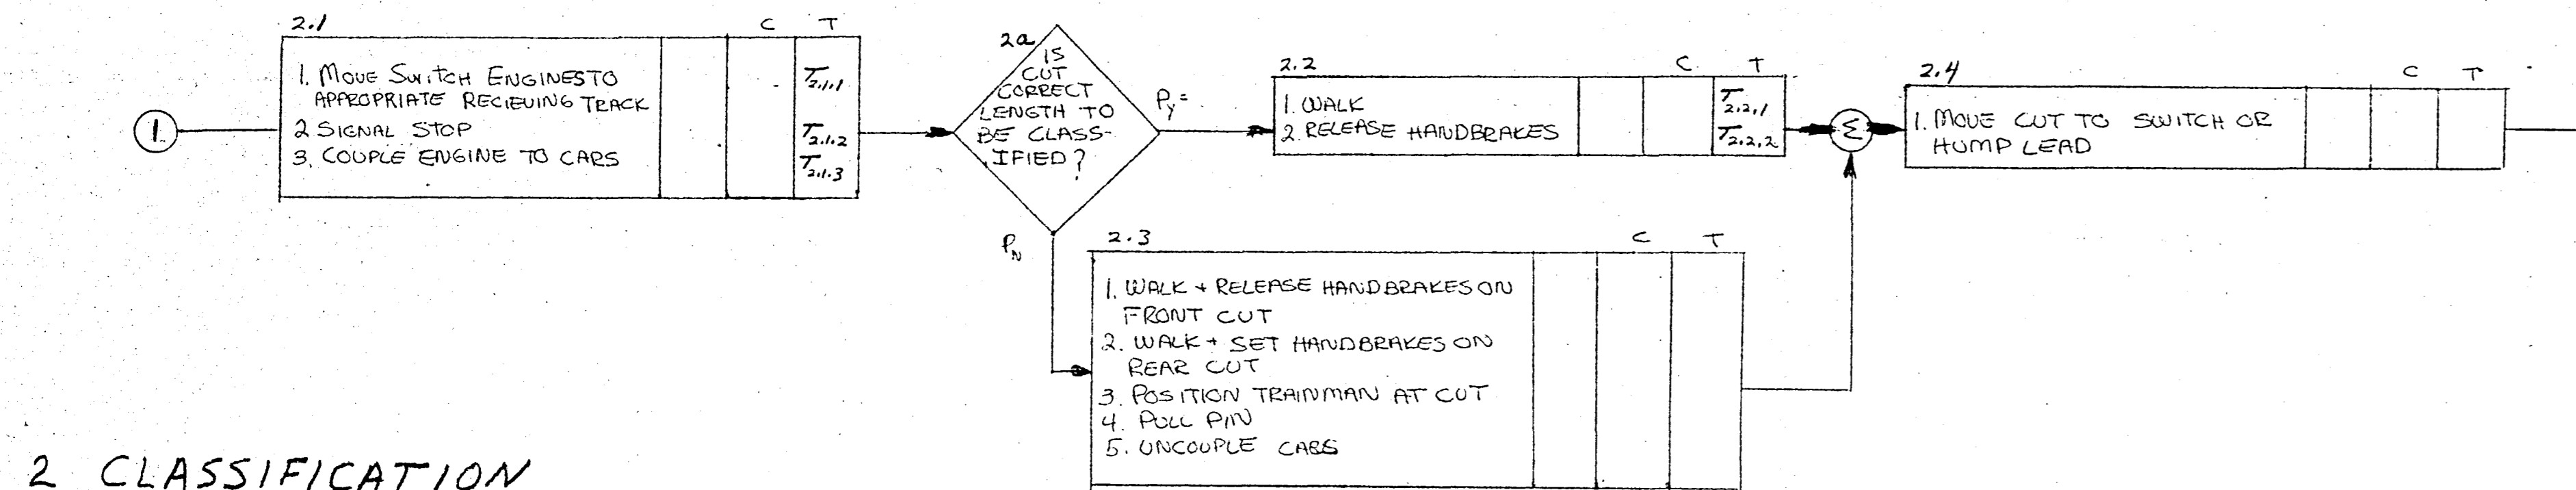 1.
2.1 C T
1. MOVE SWITCH ENGINES TO
APPROPRIATE RECIEVING TRACK
2 SIGNAL STOP
3. COUPLE ENGINE TO CARS
T2.1.1
T2.1.2
T2.1.3
2a
IS
CUT
CORRECT
LENGTH TO
BE CLASS-
IFIED?
PY=
PN
2.2 C T
1. WALK
2. RELEASE HANDBRAKES
T2.2.1
T2.2.2
Σ
2.3 C T
1. WALK + RELEASE HANDBRAKES ON
FRONT CUT
2. WALK + SET HANDBRAKES ON
REAR CUT
3. POSITION TRAINMAN AT CUT
4. PULL PIN
5. UNCOUPLE CARS
2.4 C T
1. MOVE CUT TO SWITCH OR
HUMP LEAD
2 CLASSIFICATION